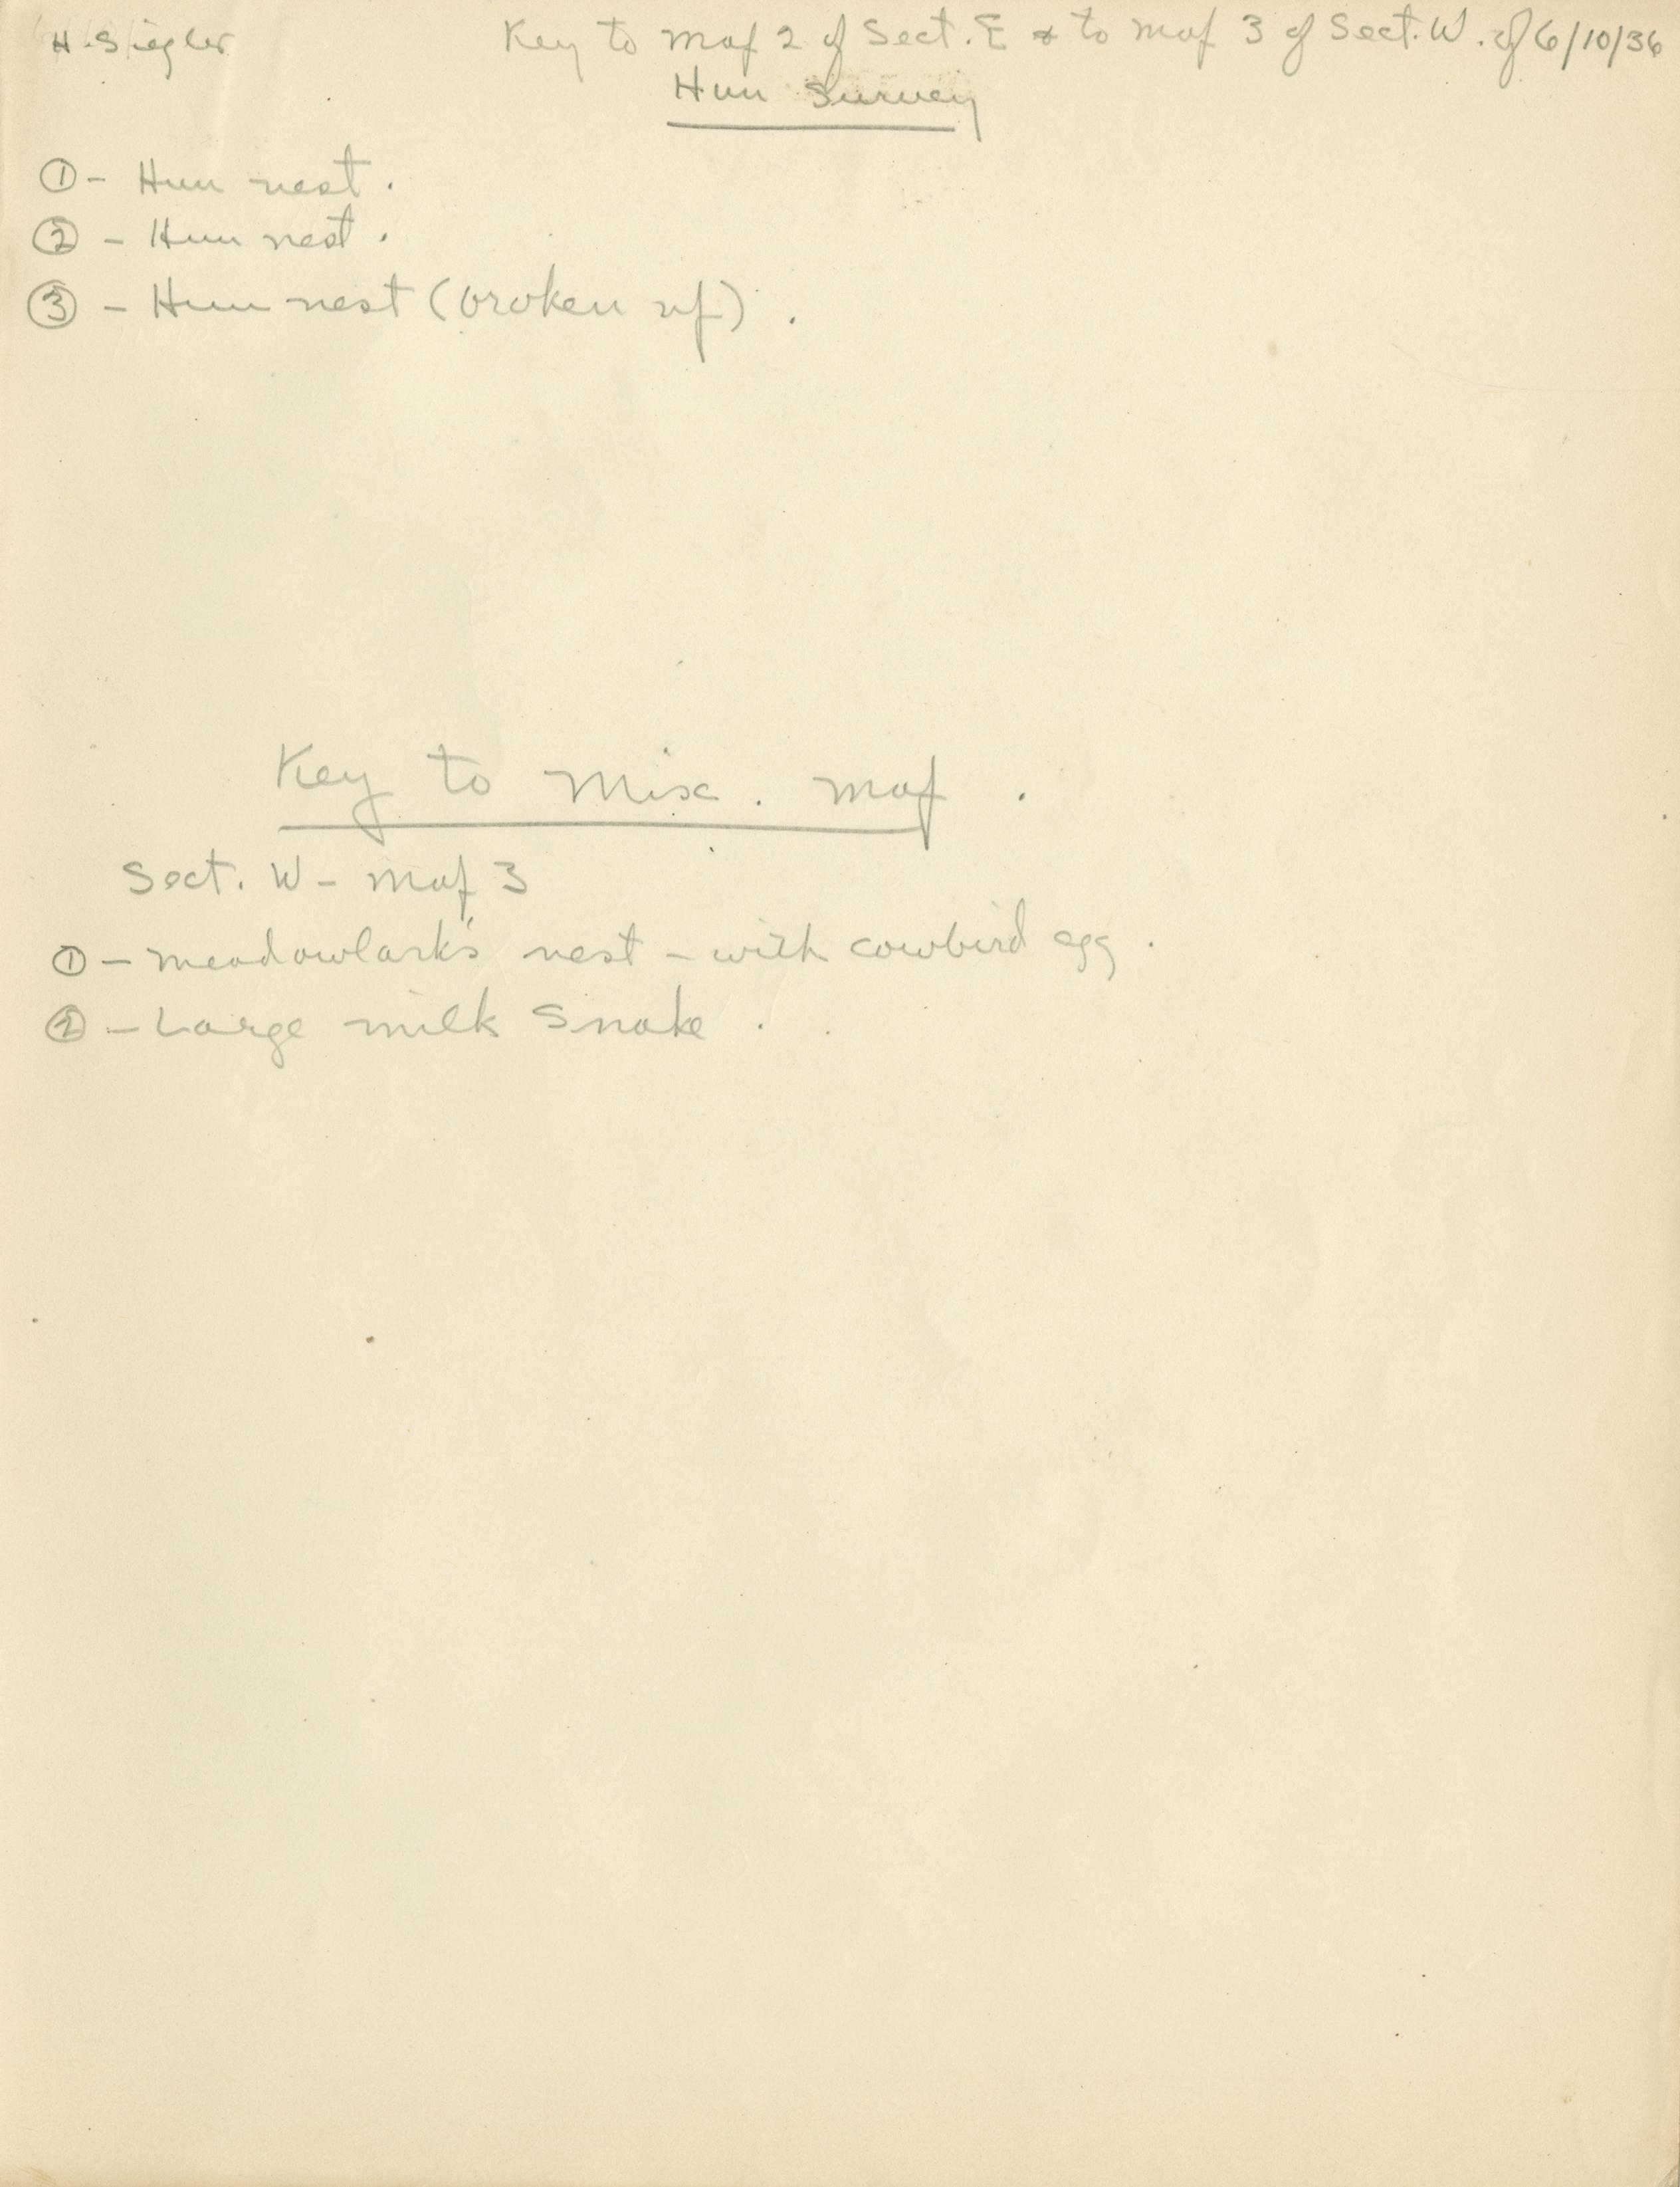 H. Siegler Key to map 2 of Sect. E & to map 3 of Sect. W. of 6/10/36
Hun Survey
① - Hun nest.
② - Hun nest.
③ - Hun nest (broken up).
Key to Misc. map.
Sect. W - map 3
① - meadowlark's nest - with cowbird egg.
② - Large milk snake.